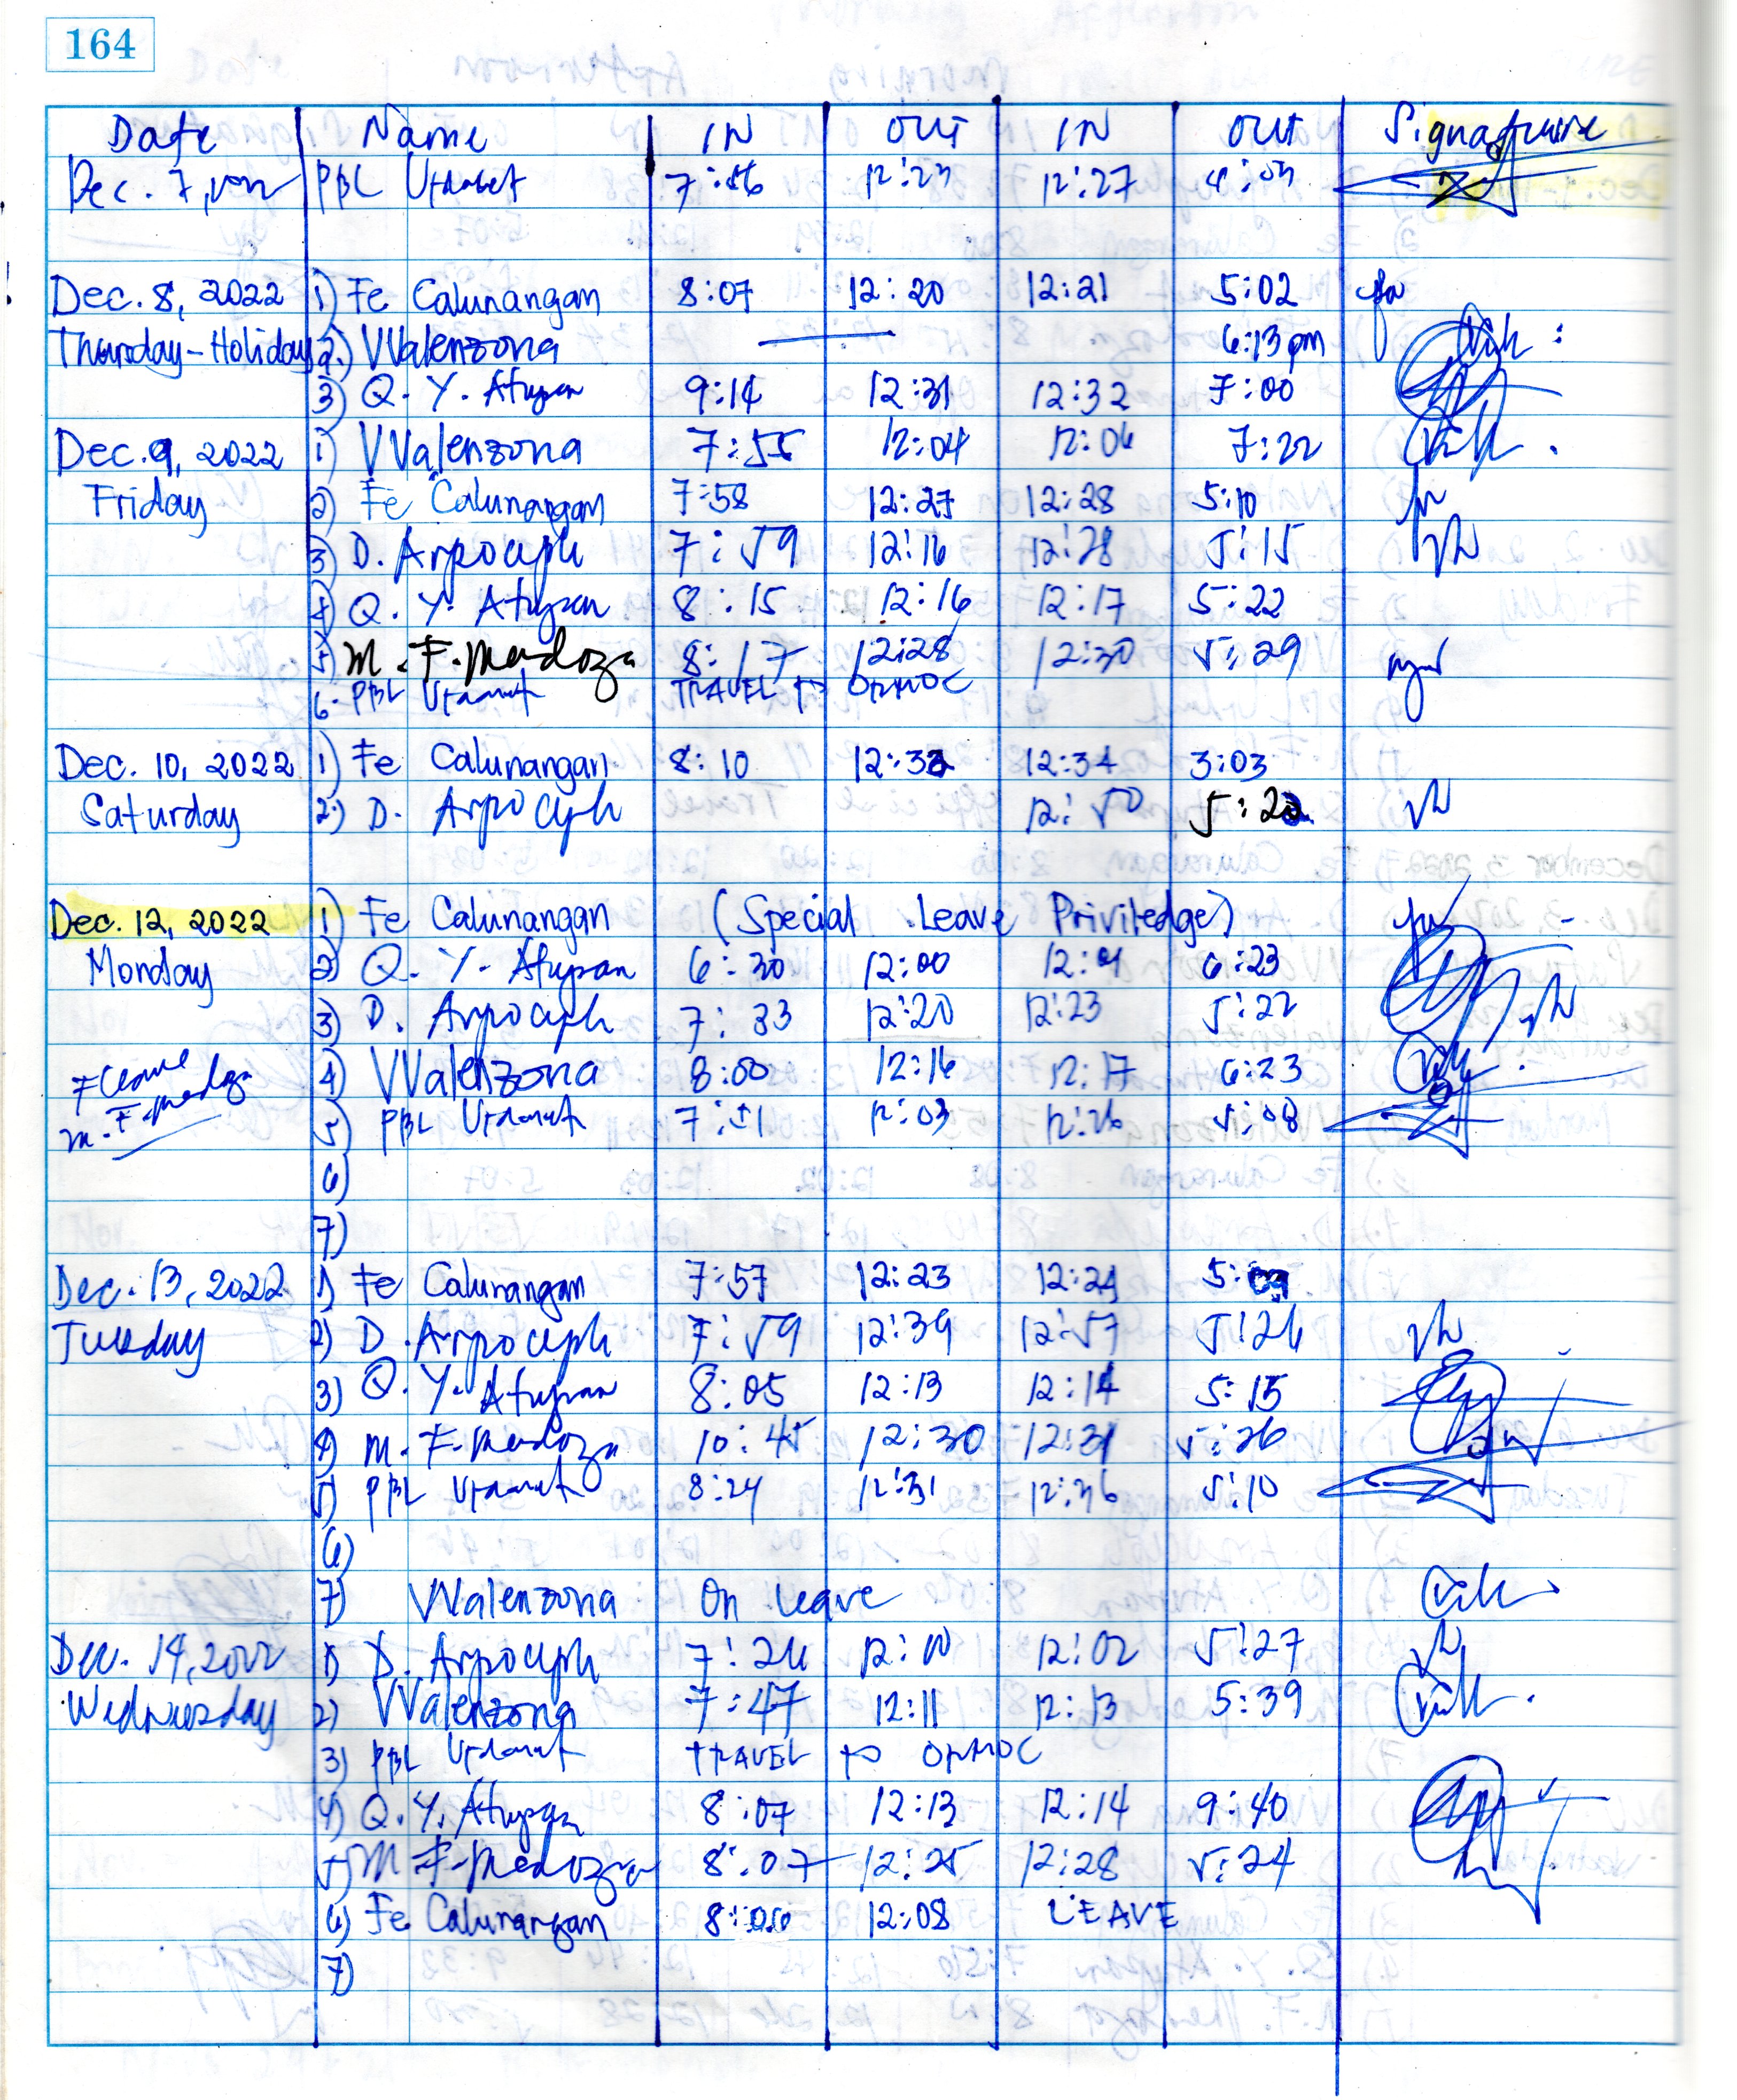 164
Date Name IN OUT IN OUT Signature
Dec. 7, 2022 PBL 7:46 12:23 12:27 4:03
Dec. 8, 2022 1) Fe Calunangan 8:07 12:20 12:21 5:02
Thursday-Holiday 2.) VValenzona 6:13 pm
3) Q. Y. Atupan 9:14 12:31 12:32 7:00
Dec. 9, 2022 1) VValenzona 7:55 12:04 12:06 7:22
Friday 2) Fe Calunangan 7:58 12:27 12:28 5:10
3) D. Arpoceph 7:59 12:16 12:28 5:15
4) Q. Y. Atupan 8:15 12:16 12:17 5:22
5) M. F. Mendoza 8:17 12:28 12:30 5:29
6. PBL TRAVEL to ORMOC
Dec. 10, 2022 1) Fe Calunangan 8:10 12:33 12:34 3:03
Saturday 2) D. Arpoceph 12:50 5:22
Dec. 12, 2022 1) Fe Calunangan (Special Leave Priviledge)
Monday 2) Q. Y. Atupan 6:30 12:00 12:01 6:23
3) D. Arpoceph 7:33 12:20 12:23 5:22
4) VValenzona 8:00 12:16 12:17 6:23
F Leave
M. F. Mendoza
5) PBL 7:51 12:03 12:26 5:08
6)
7)
Dec. 13, 2022 1) Fe Calunangan 7:57 12:23 12:24 5:09
Tuesday 2) D. Arpoceph 7:59 12:39 12:57 5:26
3) Q. Y. Atupan 8:05 12:13 12:14 5:15
4) M. F. Mendoza 10:45 12:30 12:31 5:26
5) PBL 8:24 12:31 12:36 5:10
6)
7) VValenzona On leave
Dec. 14, 2022 1) D. Arpoceph 7:26 12:01 12:02 5:27
Wednesday 2) VValenzona 7:47 12:11 12:13 5:39
3) PBL TRAVEL to ORMOC
4) Q. Y. Atupan 8:07 12:13 12:14 9:40
5) M F. Mendoza 8:07 12:25 12:28 5:24
6) Fe Calunangan 8:00 12:08 LEAVE
7)